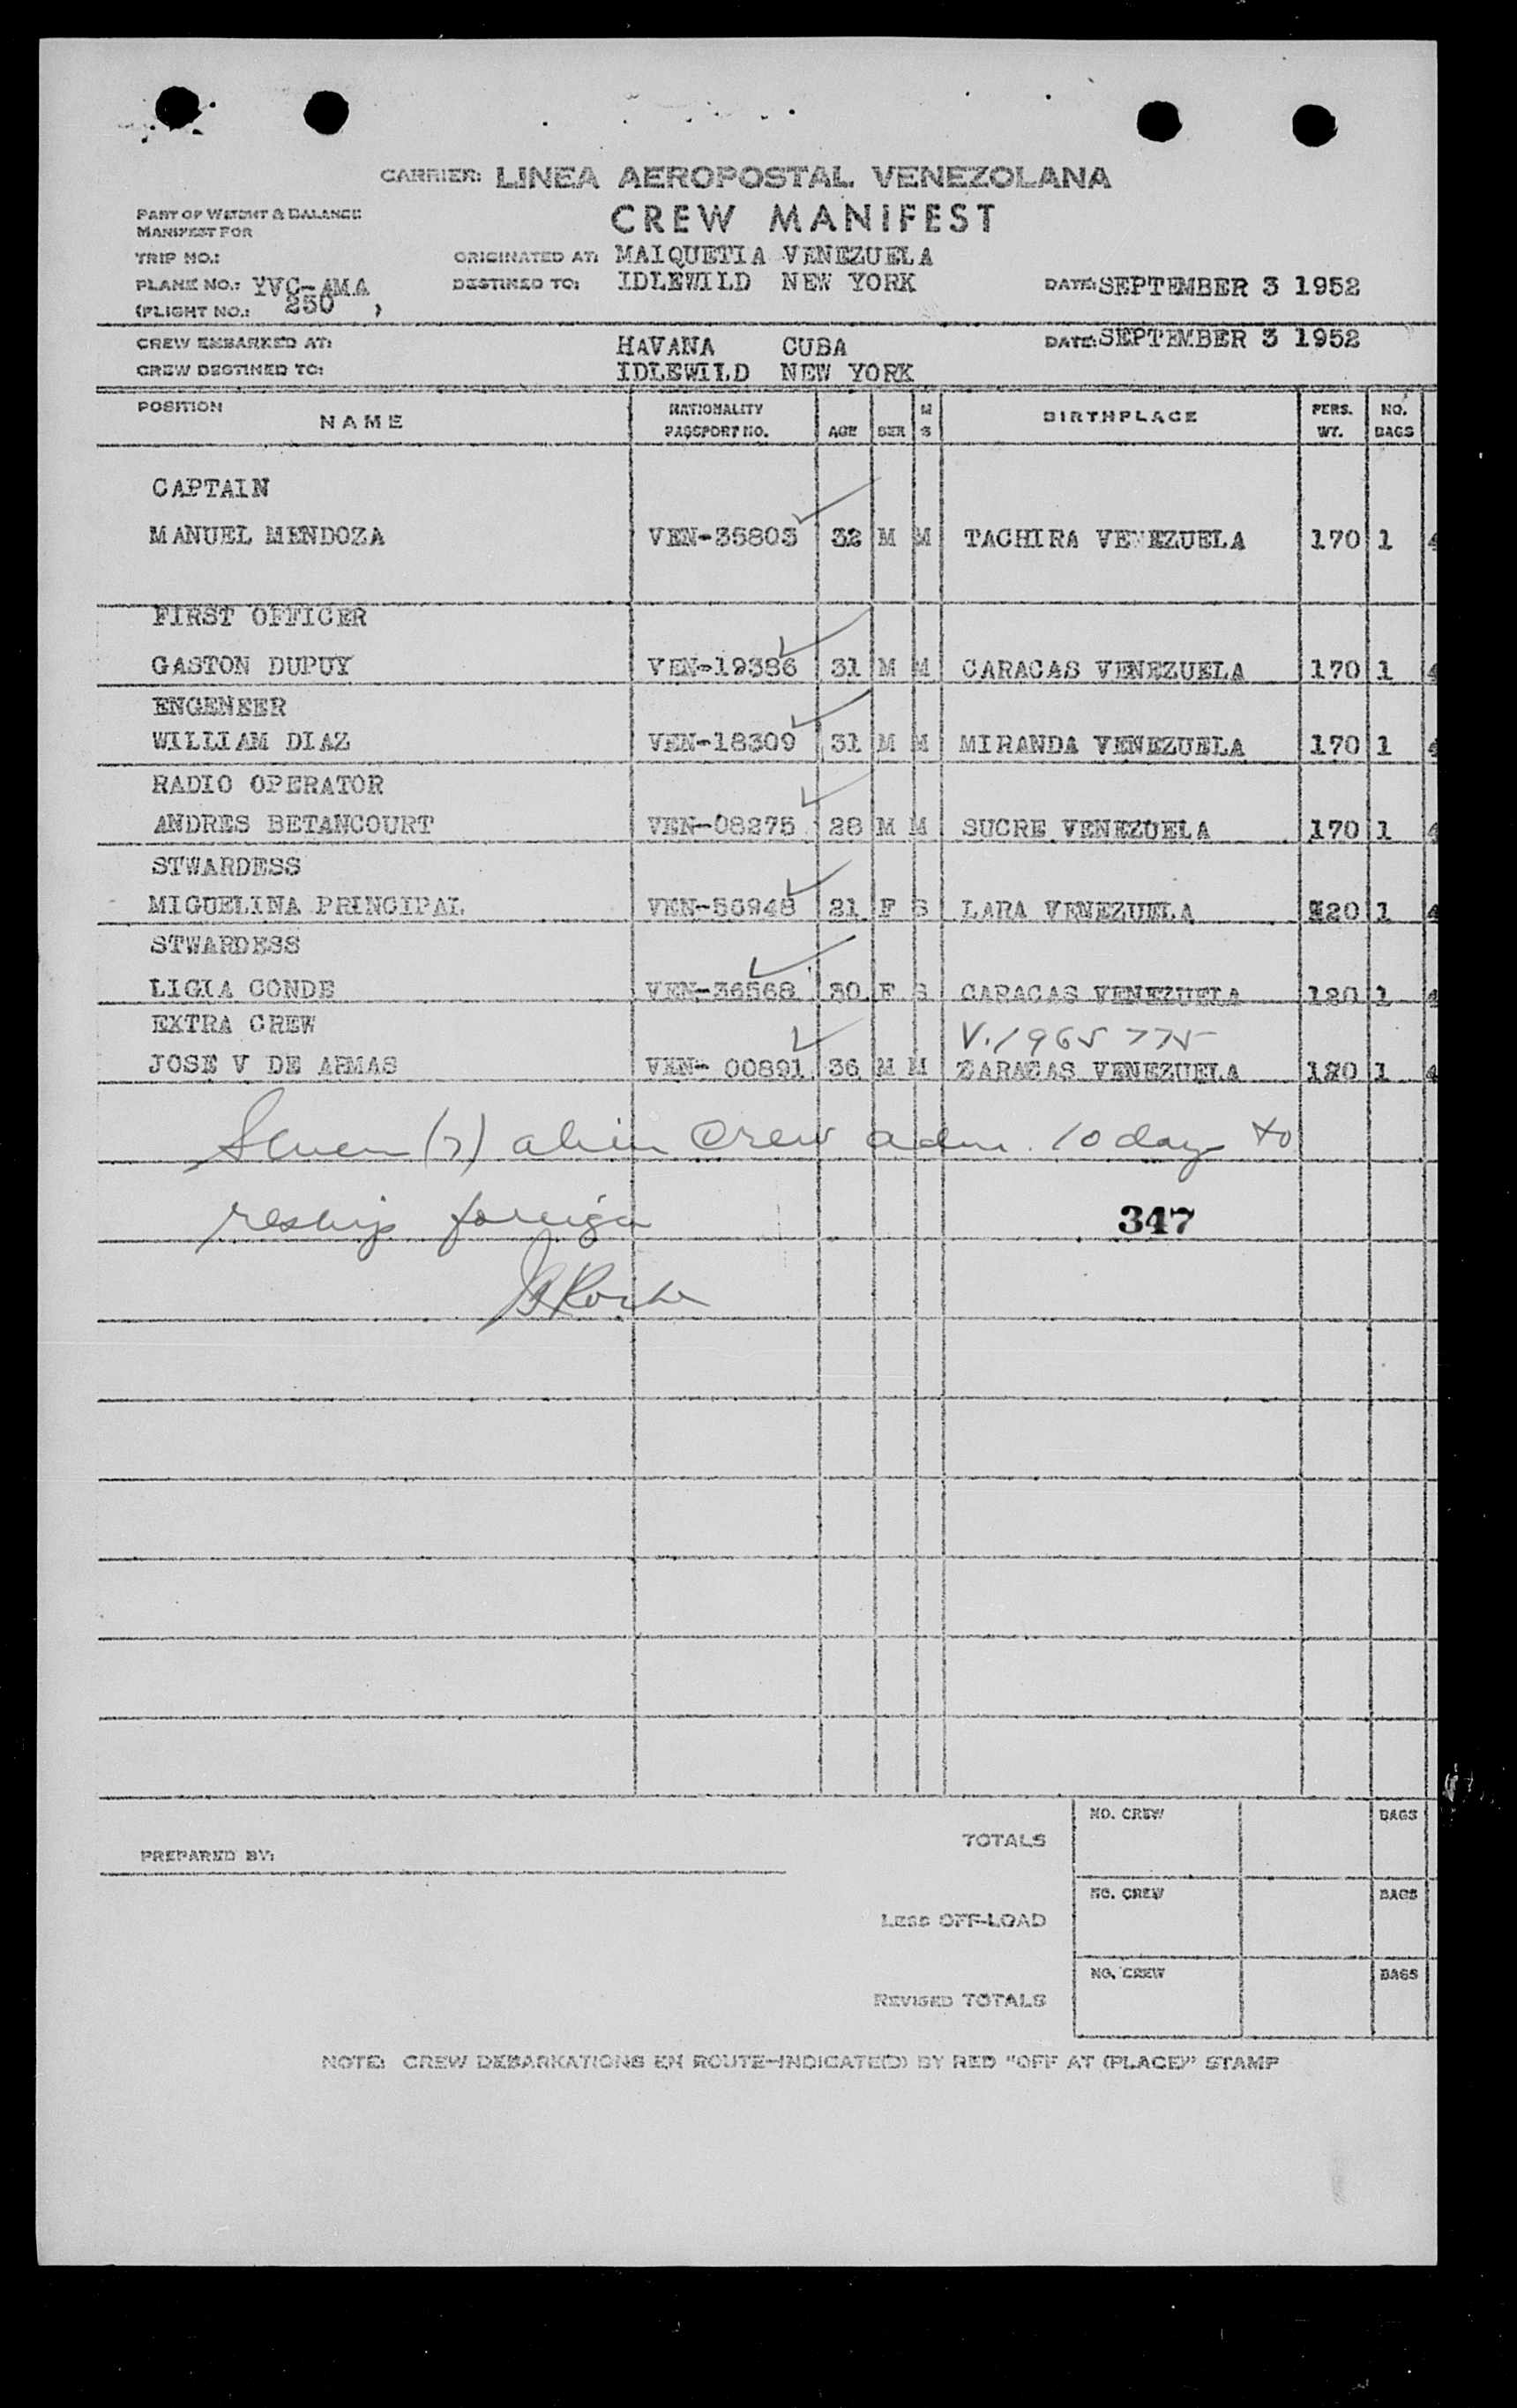 CARRIER: LINEA AEROPOSTAL VENEZOLANA
PART OF WEIGHT & BALANCE
MANIFEST FOR
CREW MANIFEST
TRIP NO.: ORIGINATED AT: MAIQUETIA VENEZUELA
PLANE NO.: YVC-AMA DESTINED TO: IDLEWILD NEW YORK DATE: SEPTEMBER 3 1952
(FLIGHT NO.: 250 )
CREW EMBARKED AT: HAVANA CUBA DATE: SEPTEMBER 3 1952
CREW DESTINED TO: IDLEWILD NEW YORK
POSITION NAME NATIONALITY PASSPORT NO. AGE SEX M S BIRTHPLACE PERS. WT. NO. BAGS
CAPTAIN
MANUEL MENDOZA VEN-35803 32 M M TACHIRA VENEZUELA 170 1 4
FIRST OFFICER
GASTON DUPUY VEN-19386 31 M M CARACAS VENEZUELA 170 1 4
ENGENEER
WILLIAM DIAZ VEN-18309 31 M M MIRANDA VENEZUELA 170 1 4
RADIO OPERATOR
ANDRES BETANCOURT VEN-08275 28 M M SUCRE VENEZUELA 170 1 4
STWARDESS
MIGUELINA PRINCIPAL VEN-56948 21 F S LARA VENEZUELA 120 1 4
STWARDESS
LIGIA CONDE VEN-36568 30 F S CARACAS VENEZUELA 120 1 4
EXTRA CREW V.1965775
JOSE V DE ARMAS VEN- 00891 36 M M CARACAS VENEZUELA 1 4
Seven (7) alien Crew adm. 10 days to
reship foreign 347
NO. CREW BAGS
TOTALS
PREPARED BY:
NO. CREW BAGS
LESS OFF-LOAD
NO. CREW BAGS
REVISED TOTALS
NOTE: CREW DEBARKATIONS EN ROUTE-INDICATE(D) BY RED "OFF AT (PLACE)" STAMP